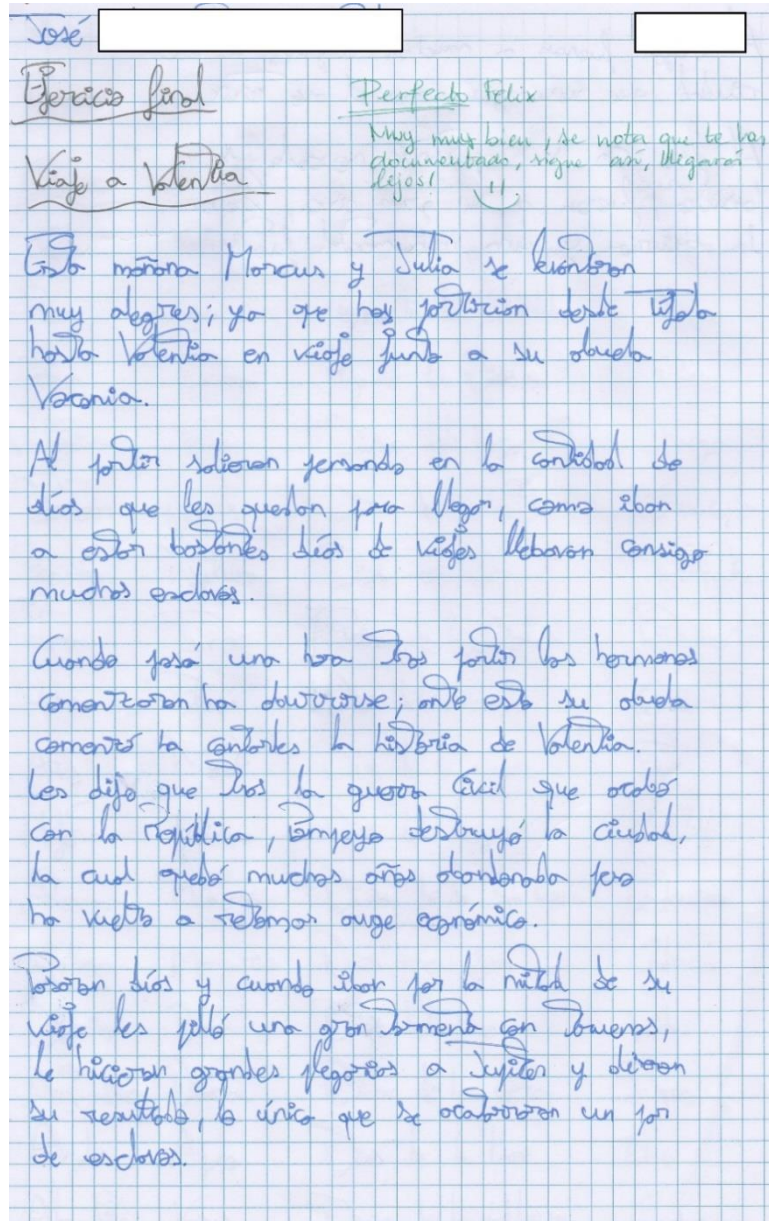 José
Ejercicio final
Perfecto Felix
Muy muy bien, se nota que te has
documentado, sigue así, llegarás
lejos!
Viaje a Valentia
Esta mañana Marcus y Julia se levantaron
muy alegres; ya que hoy partirían desde
hasta Valentia en viaje junto a su abuela
Vaconia.
Al partir salieron pensando en la cantidad de
días que les quedan para llegar, como iban
a estar bastantes días de viajes llebavan consigo
muchos esclavos.
Cuando pasó una hora tras partir los hermanos
comenzaron ha aburrirse; ante esto su abuela
comenzó ha contarles la historia de Valentia.
Les dijo que tras la guerra Civil que acabó
con la República, Pompeyo destruyó la ciudad,
la cual quedó muchos años abandonada pero
ha vuelto a retomar auge económico.
Pasaron días y cuando iban por la mitad de su
viaje les pilló una gran tormenta con truenos,
le hicieron grandes plegarias a Jupiter y dieron
su resultado, lo único que se acatarraron un par
de esclavos.